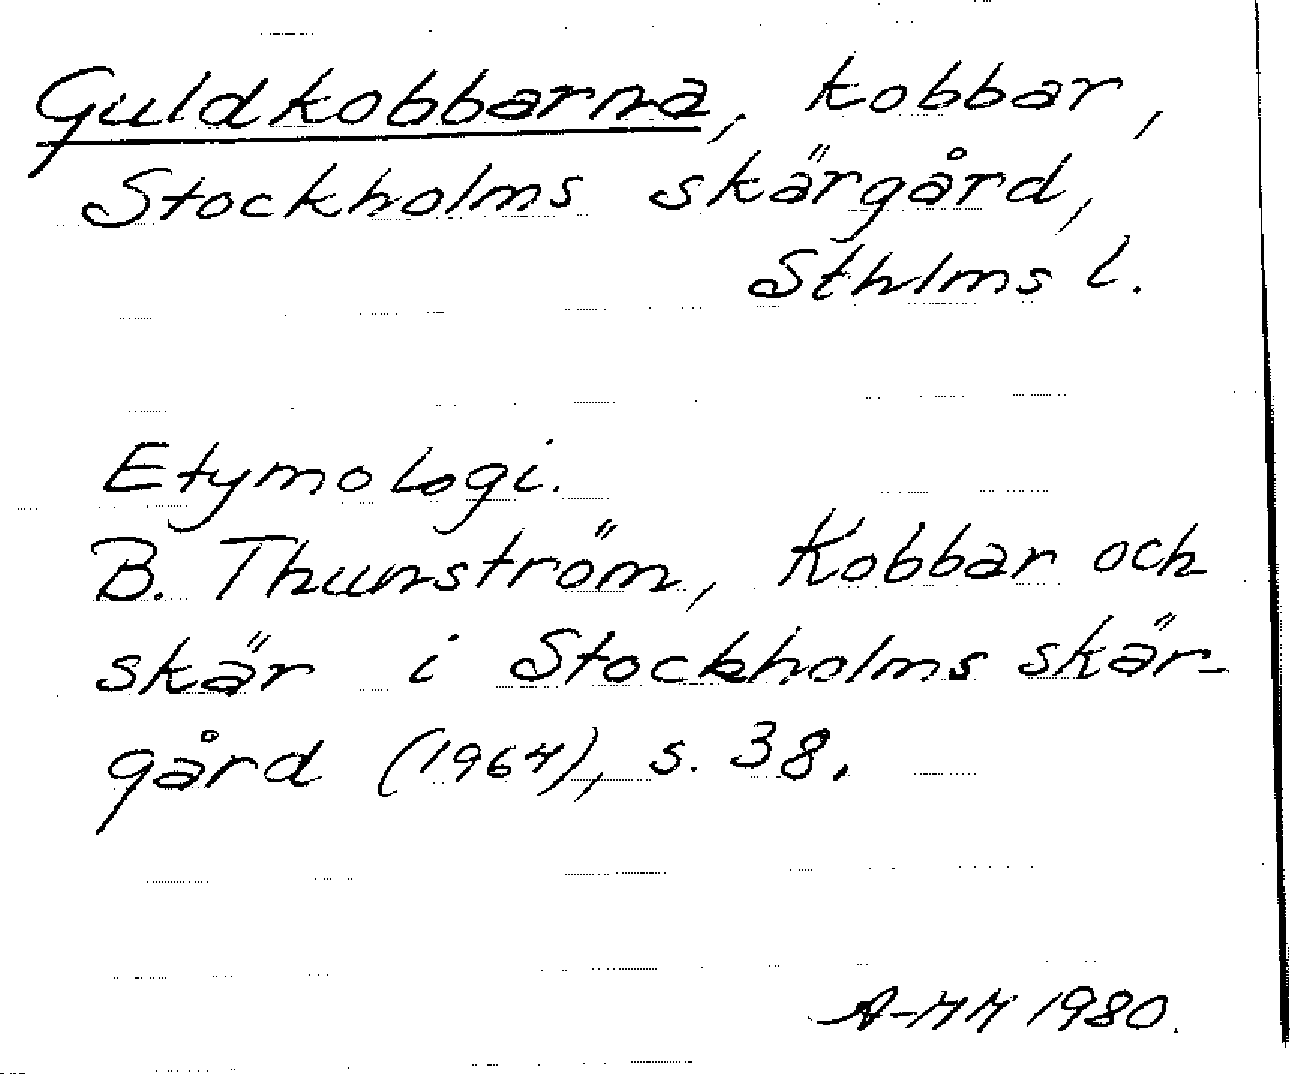 Guldkobbarna, kobbar,
Stockholms skärgård,
Sthlms l.
Etymologi.
B. Thunström, Kobbar och
skär i Stockholms skär-
gård (1964), s. 38.
1980.